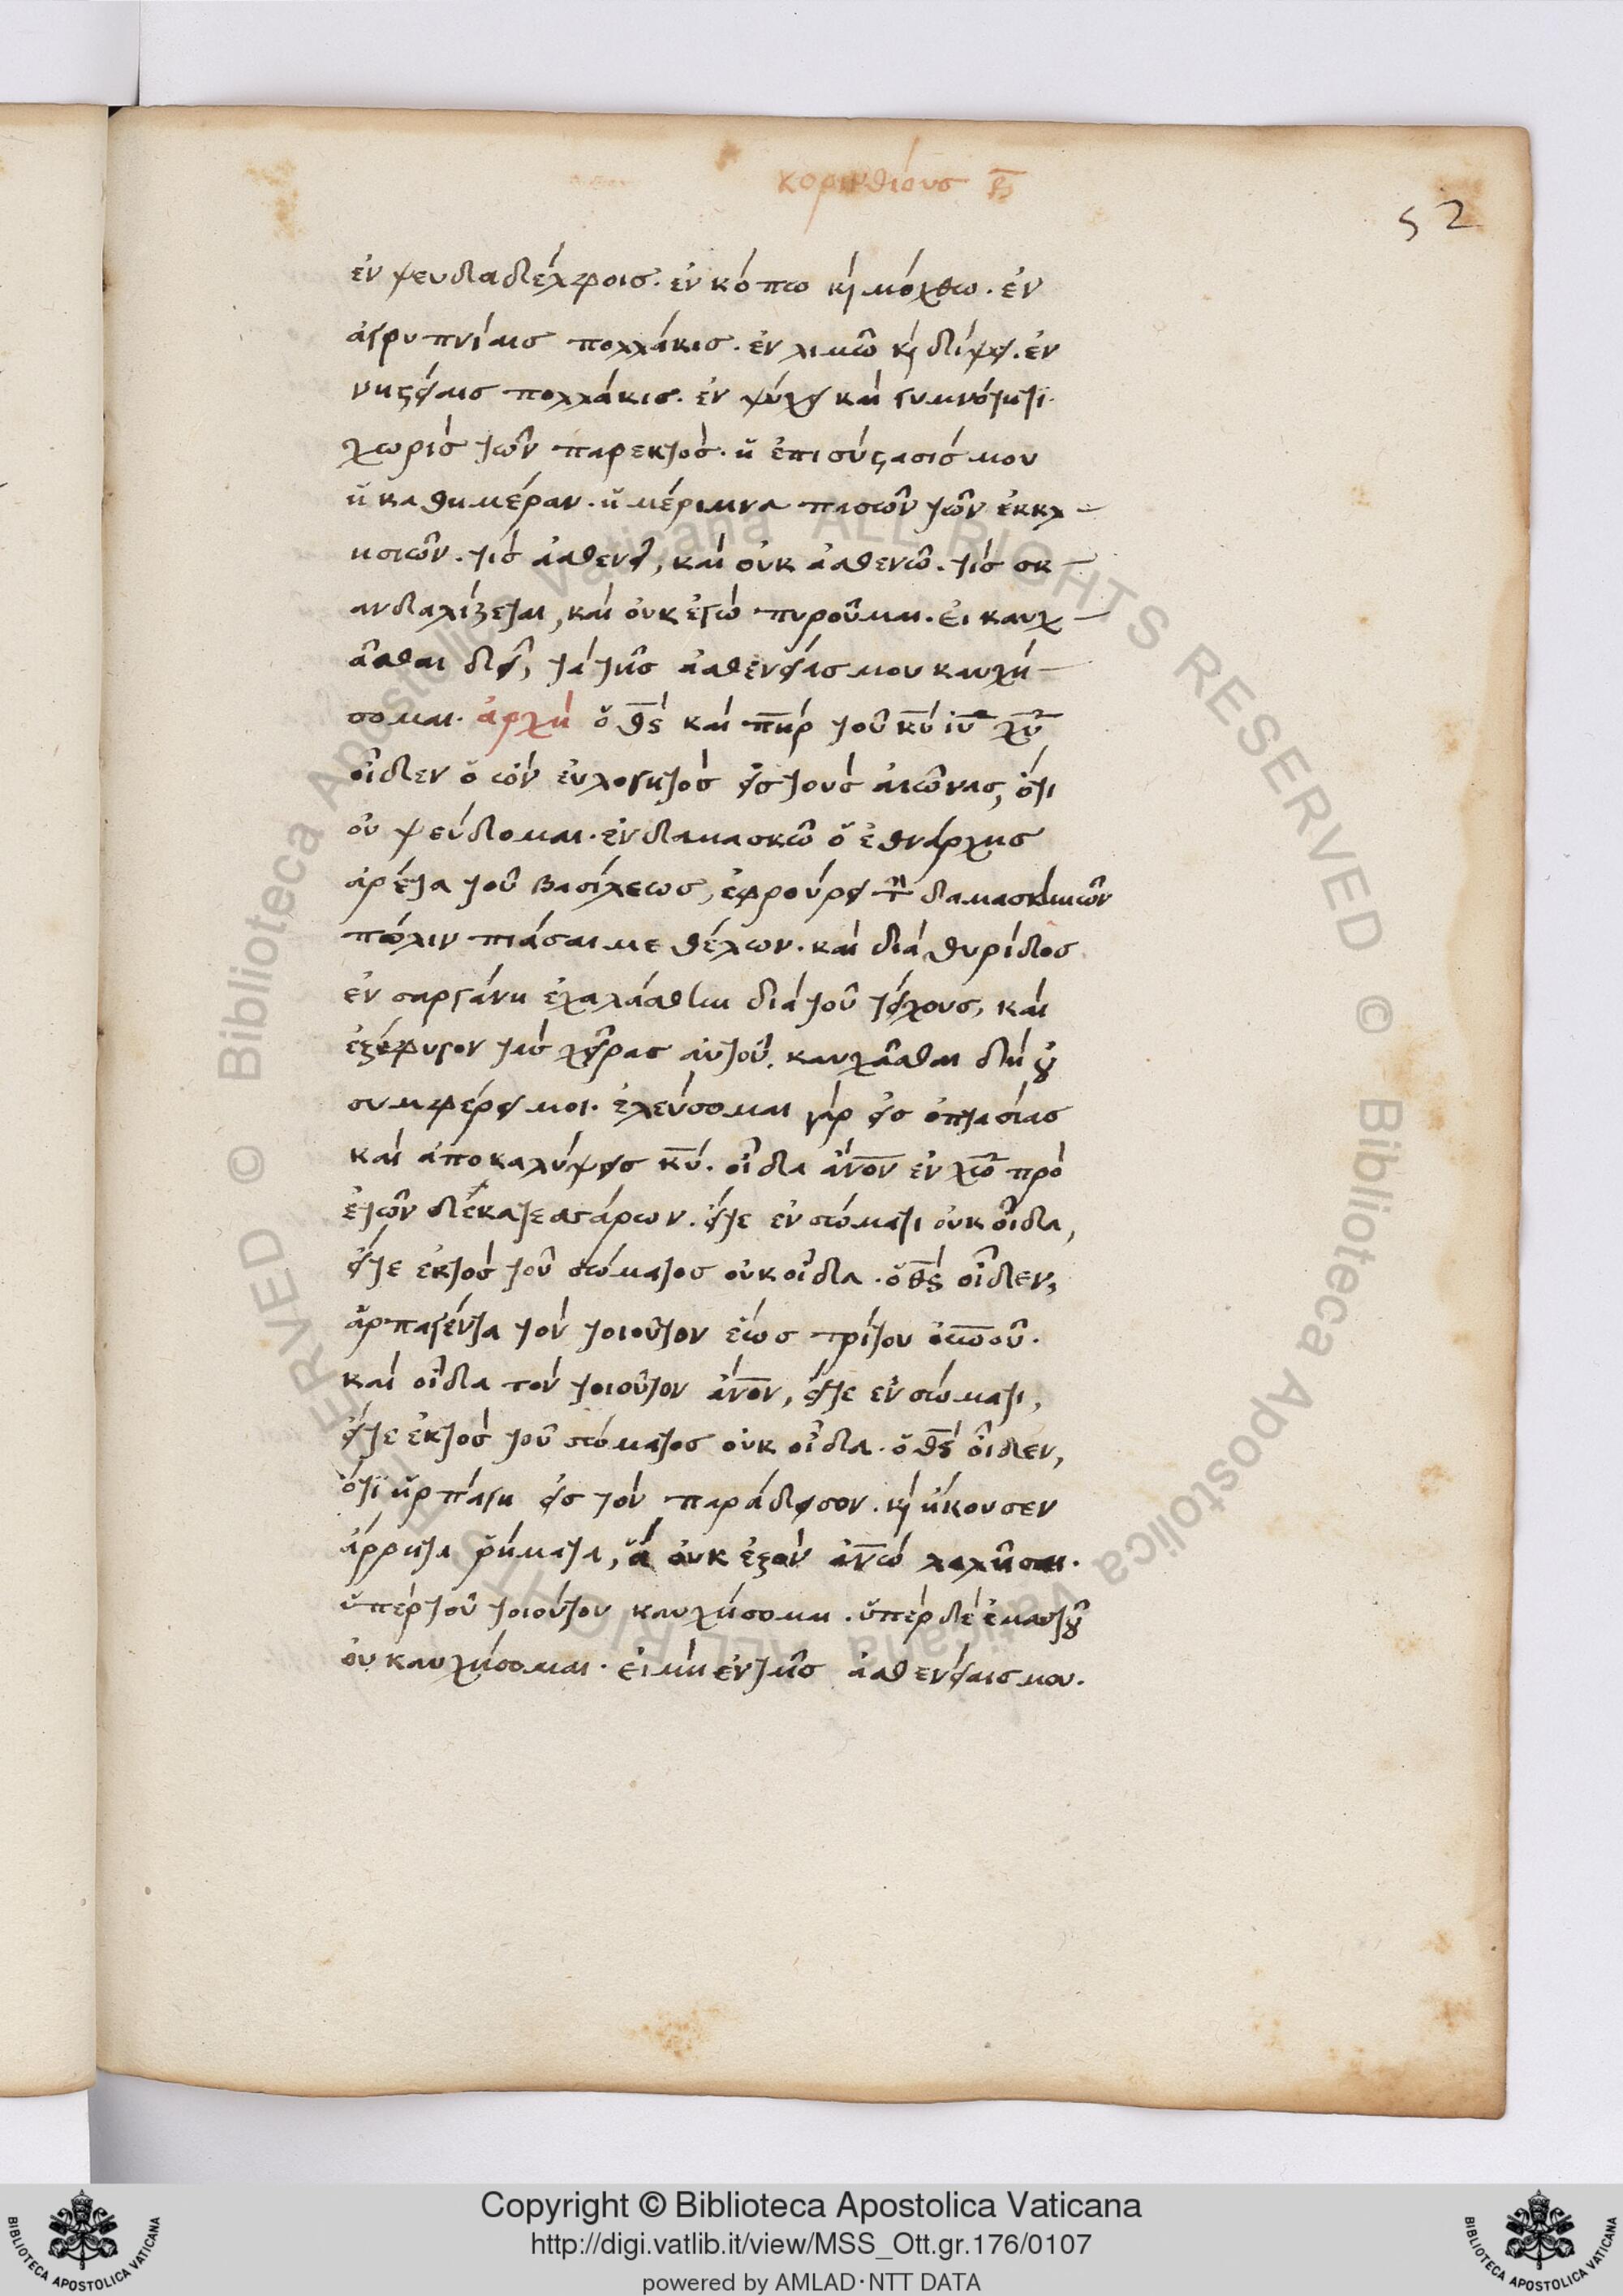 κορινθίους β
52
ἐν ψευδαδέλφοις· ἐν κόπω κ(αὶ) μόχθω. ἐν
ἀγρυπνίαις πολλάκις. ἐν λιμῶ κ(αὶ) δίψει. ἐν
νηστείαις πολλάκις. ἐν ψύχει καὶ γυμνότητι.
χωρὶς τῶν παρεκτός. ἡ ἐπισύστασίς μου
ἡ καθημέραν. ἡ μέριμνα πασῶν τῶν ἐκκλ-
ησιῶν. τίς ἀσθενεῖ, καὶ οὐκ ἀσθενῶ. τίς σκ-
ανδαλίζεται, καὶ οὐκ ἐγὼ πυροῦμαι. εἰ καυχ-
ᾶσθαι δεῖ, τὰ τῆς ἀσθενείας μου καυχή-
σομαι. ἀρχὴ ὁ θς καὶ πηρ τοῦ κυ ιυ χυ
οἶδεν ὁ ὢν εὐλογητὸς εἰς τοὺς αἰῶνας, ὅτι
οὐ ψεύδομαι. ἐν δαμασκῶ ὁ ἐθνάρχης
ἀρέτα τοῦ βασιλέως, ἐφρούρει τὴν δαμασκηνῶν
πόλιν πιάσαι με θέλων. καὶ διὰ θυρίδος
ἐν σαργάνη ἐχαλάσθην διὰ τοῦ τείχους, καὶ
ἐξέφυγον τὰς χεῖρας αὐτοῦ. καυχᾶσθαι δὴ οὐ
συμφέρει μοι. ἐλεύσομαι γὰρ εἰς ὀπτασίας
καὶ ἀποκαλύψεις κυ. οἶδα ἄνον ἐν χω πρὸ
ἐτῶν δεκατεσσάρων. εἴτε ἐν σώματι οὐκ οἶδα,
εἴτε ἐκτὸς τοῦ σώματος οὐκ οἶδα. ὁ θς οἶδεν,
ἁρπαγέντα τὸν τοιοῦτον ἕως τρίτου οὐνοῦ.
καὶ οἶδα τὸν τοιοῦτον ἄνον, εἴτε ἐν σώματι,
εἴτε ἐκτὸς τοῦ σώματος οὐκ οἶδα. ὁ θς οἶδεν,
ὅτι ἡρπάγη εἰς τὸν παράδεισον. κ(αὶ) ἤκουσεν
ἄρρητα ῥήματα, ἃ οὐκ ἐξὸν ἀνω λαλῆσαι.
ὑπὲρ τοῦ τοιούτου καυχήσομαι. ὑπὲρ δὲ ἐμαυτοῦ
οὐ καυχήσομαι. εἰ μὴ ἐν τῆς ἀσθενείαις μου.
Copyright © Biblioteca Apostolica Vaticana
http://digi.vatlib.it/view/MSS_Ott.gr.176/0107
powered by AMLAD·NTT DATA